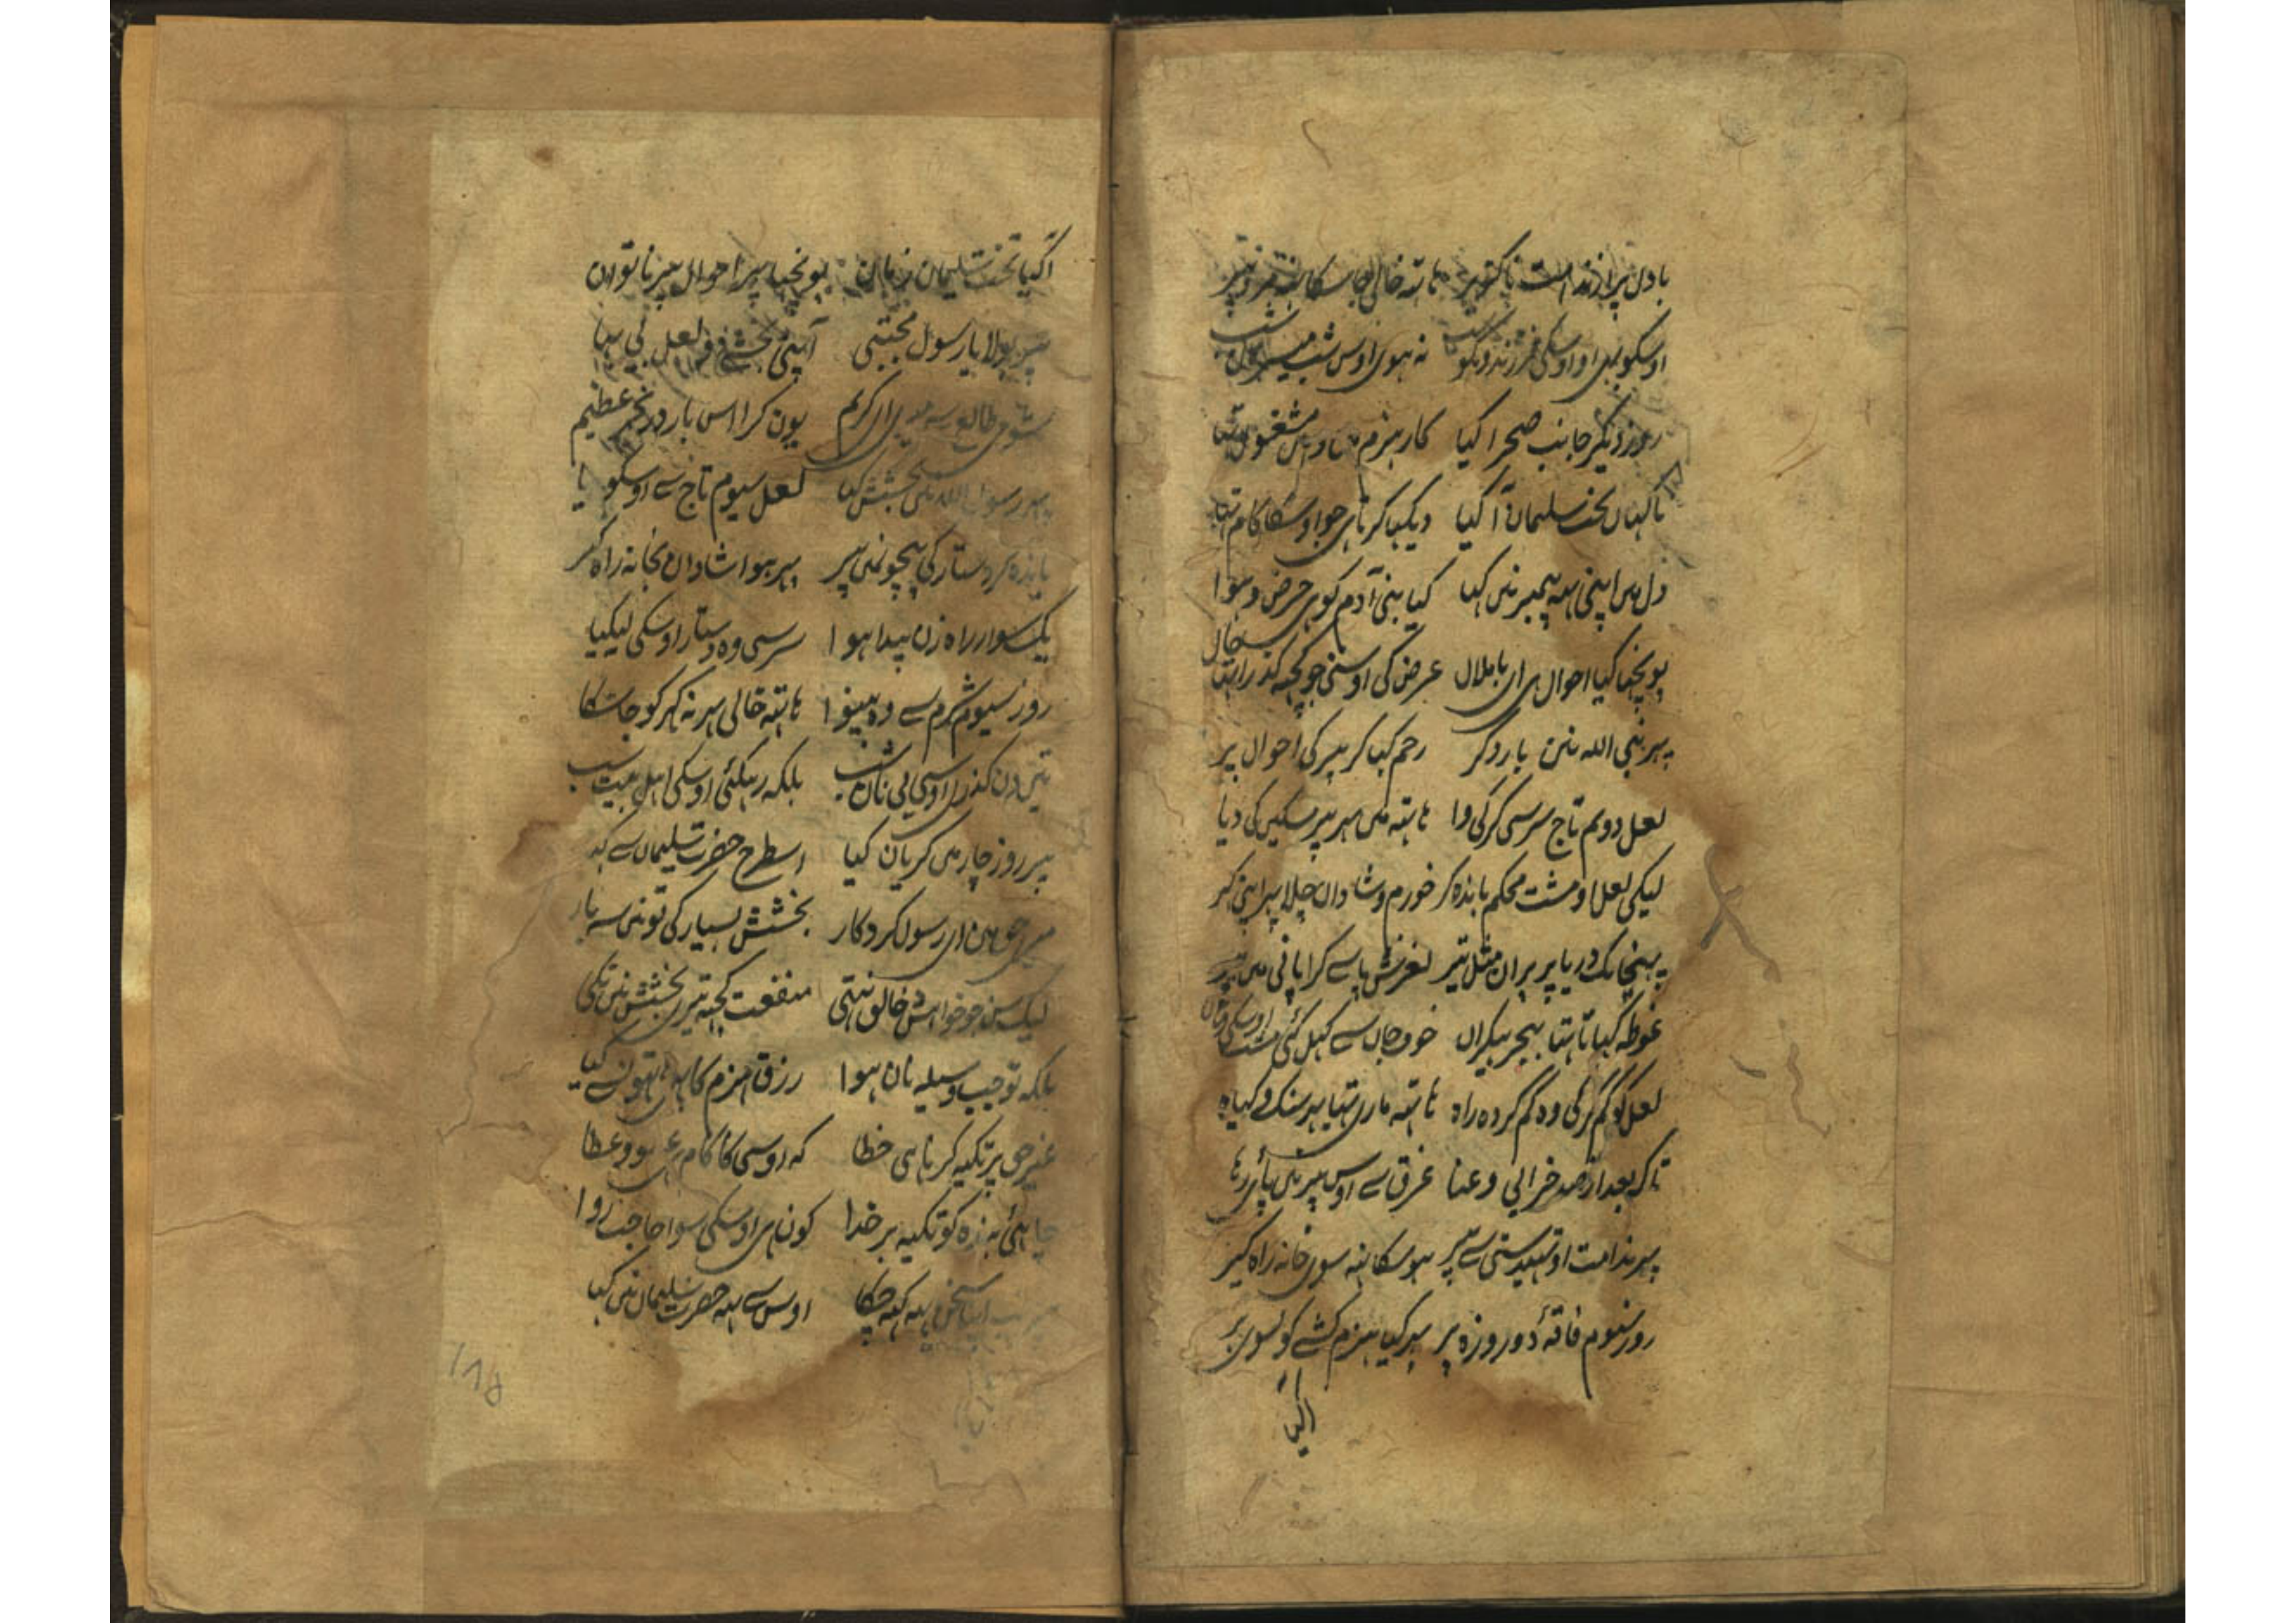 بادل پر از ندامت ناکزیر ہاتہ خالی جا سکا نہ
اوسکو بہی او اوسکی فرزند و نکو نہ ہوی اوس شب میسر
روز دیگر جانب صحرا کیا کار ہیزم مشغول تہا
ناکہاں تخت سلیمان آ کیا دیکہا کرتا ہی جو اوسکا کام تہا
دل میں اپنی یہ پیمبر نی کہا کیا بنی آدم کو ہی حرص و ہوا
پونچہا کیا احوال ہی ای با ملال عرض کی اوسنی جو کچہہ کذرا تہا حال
پہر نبی اللہ نی بار دکر رحم کہا کر پیر کی احوال پر
لعل دویم تاج سر سی کر کی وا ہاتہ میں پیر مسکین کی دیا
لیکی لعل او مشت محکم باندہ کر خورم و شادان چلا پہر اپنی کہر
پہنچا یک دریا پر پران مثل تیر لغزش پا سے کرا پانی میں پیر
غوطہ کہاتا تہا ببحر بیکراں خوف جاں سے کہل کئی مشت اوسکی وہاں
لعل کو کم کر کی وہ کم کردہ راہ ہاتہ ماری تہا بہر سنک و کیاہ
تا کہ بعد از صد خرابی و عنا غرق سے اوس پیر نی پائی رہا
پہر ندامت او تہیدستی سے پیر ہو سکا نہ سوی خانہ راہ کیر
روز سیوم فاقۂ دو روزہ پر پہر کیا ہیزم کشے کو سوی بر
آکیا
آکیا تخت سلیمان زمان پونچہا پہر احوال پیر ناتوان
پیر بولا یا رسول مجتبی آپنی بخشی دو لعل بی بہا
شومی طالع سے میری ای کریم یون کرا اس بار در بحر عظیم
پہر رسول اللہ نی بخشش کیا لعل سیوم تاج سے اوسکو
باندہ کر دستار کی پیچونمیں پیر پہر ہوا شادان بخانہ راہ کیر
یک سوار راہ زن پیدا ہوا سر سی وہ دستار اوسکی لیکیا
روز سیوم شرم سے وہ بینوا ہاتہ خالی پہر نہ کہر کو جا سکا
تین دن کذرا اوسی بی نان شب بلکہ رہکئی اوسکی اہل بیت سب
پیر روز چار میں کریان کیا اسطرح حضرت سلیمان سے کہا
ای رسول کردکار بخشش بسیار کی تونی سہ بار
لیک خواہش خالق نتہی منفعت کچہہ تیری بخشش نی نکی
بلکہ توجیب وسیلہ نان ہوا رزق ہیزم کا ہاتہون سے کیا
غیر حق پر تکیہ کرنا ہی خطا کہ اوسی کا کام ہی و عطا
چاہئی بندہ کو تکیہ بر خدا کون ہی اوسکی سوا حاجت روا
اپنا سخن یہہ کہہ چکا اوس سے یہہ حضرت سلیمان نی کہا